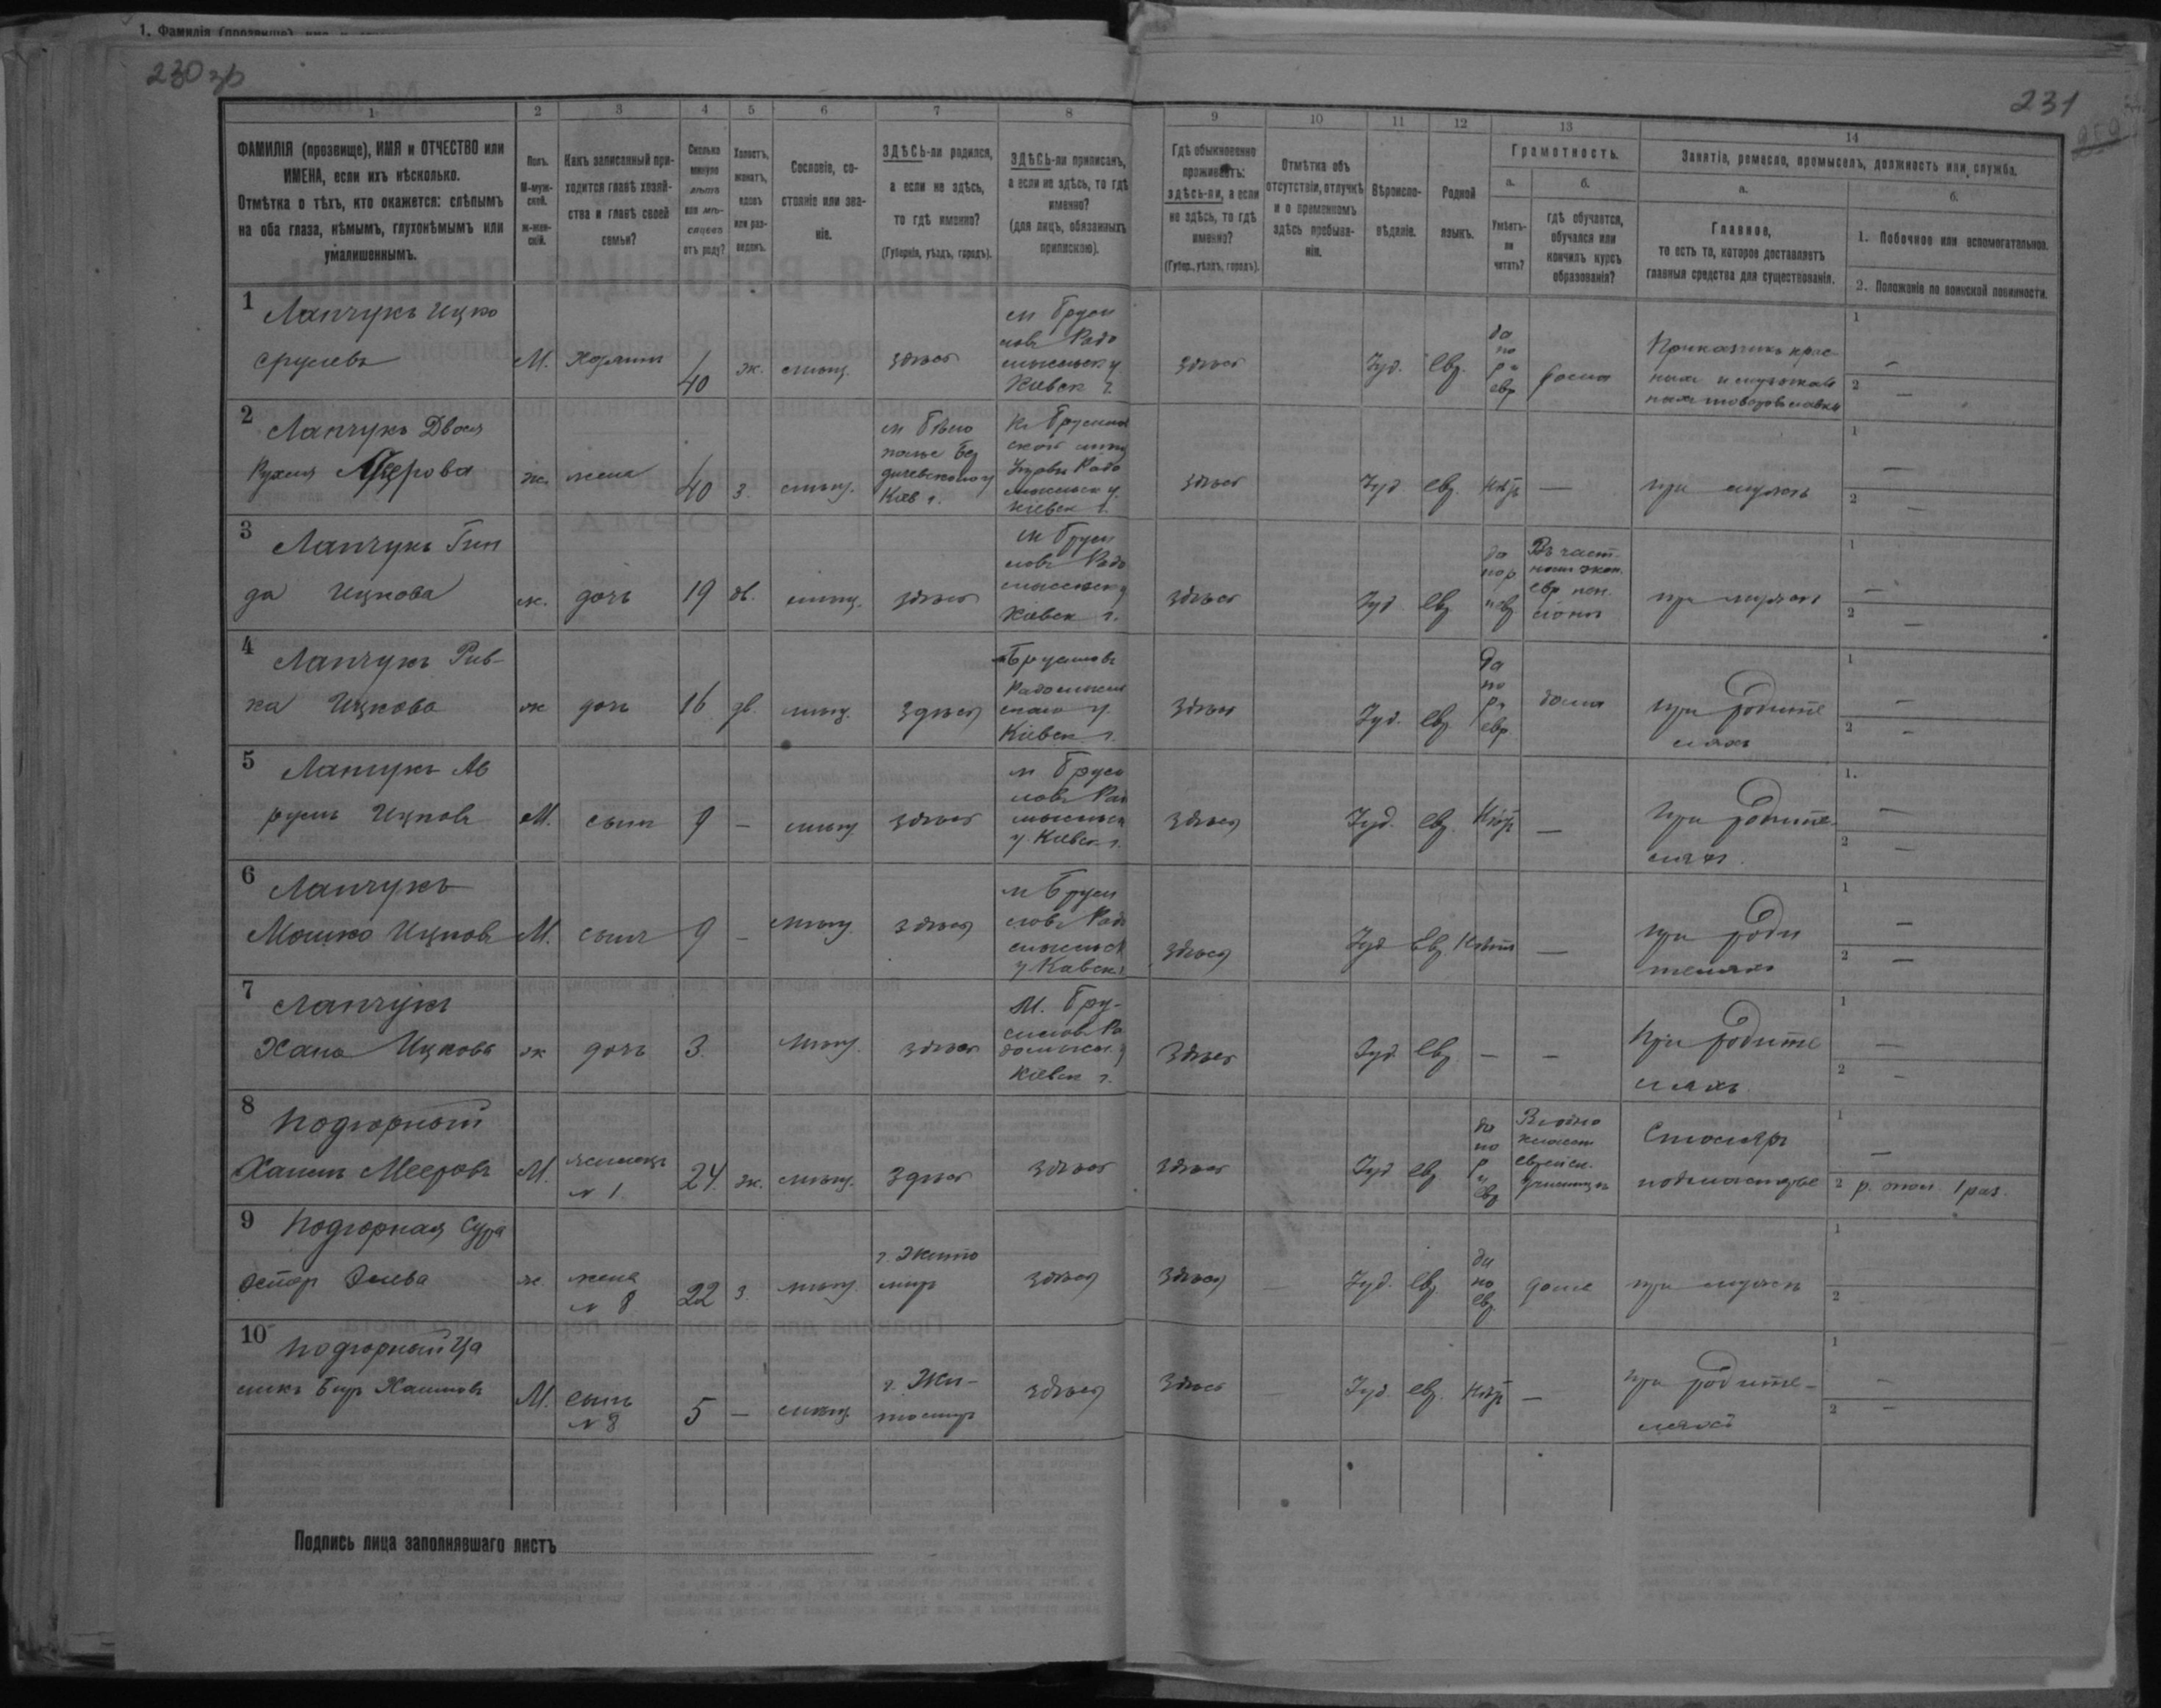 1. Фамилія (прозвище)
230 зв
231
259
1
2
3
4
5
6
7
8
9
10
11
12
13
14
ФАМИЛІЯ (прозвище), ИМЯ и ОТЧЕСТВО или
ИМЕНА, если ихъ нѣсколько.
Отмѣтка о тѣхъ, кто окажется: слѣпымъ
на оба глаза, нѣмымъ, глухонѣмымъ или
умалишеннымъ.
Полъ.
М-муж-
ской.
ж-жен-
скій.
Какъ записанный при-
ходится главѣ хозяй-
ства и главѣ своей
семьи?
Сколько
минуло
лѣтъ
или мѣ-
сяцевъ
отъ роду?
Холостъ,
женатъ,
вдовъ
или раз-
веденъ.
Сословіе, со-
стояніе или зва-
ніе.
ЗДѢСЬ-ли родился,
а если не здѣсь,
то гдѣ именно?
(Губернія, уѣздъ, городъ).
ЗДѢСЬ-ли приписанъ,
а если не здѣсь, то гдѣ
именно?
(для лицъ, обязанныхъ
припискою).
Гдѣ обыкновенно
проживаетъ:
здѣсь-ли, а если
не здѣсь, то гдѣ
именно?
(Губер., уѣздъ, городъ).
Отмѣтка объ
отсутствіи, отлучкѣ
и о временномъ
здѣсь пребыва-
ніи.
Вѣроиспо-
вѣданіе.
Родной
языкъ.
Грамотность.
а.
Умѣетъ-
ли
читать?
б.
гдѣ обучается,
обучался или
кончилъ курсъ
образованія?
Занятіе, ремесло, промыселъ, должность или служба.
а.
Главное,
то есть то, которое доставляетъ
главныя средства для существованія.
б.
1. Побочное или вспомогательное.
2. Положеніе по воинской повинности.
1 Лапчукъ Ицко
Срулевъ
М. Хозяинъ 40 ж. мѣщ. здѣсь
м Бруси
ловъ Радо
мысльск у
Кіевск г.
здѣсь Іуд. евр.
да
по
р и
евр
дома
Приказчикъ крас
2 Лапчукъ Двося
Рухля
ж. жена 40 з. мѣщ.
м Бѣло
полье Бер
дичевскаго у
Кіев г.
Радо
мысльск у.
Кіевск г.
здѣсь Іуд. евр. нѣтъ —
при мужѣ
3 Лапчукъ Гин
да Ицкова
ж. дочь 19 дв. мѣщ. здѣсь
м Бруси
ловъ Радо
мысльск у
Кіевск г.
здѣсь Іуд. евр.
да
по р
и евр
Въ част-
ном жен.
евр. пан
сіонѣ
4 Лапчукъ Рив-
ка Ицкова
ж дочь 16 дв. мѣщ. здѣсь
Брусиловъ
Радомысль
скаго у.
Кіевск г.
здѣсь Іуд. евр.
да
по
р и
евр.
дома
при родите
ляхъ
5 Лапчукъ Ав
румъ Ицковъ
М. сынъ 9 — мѣщ здѣсь
м Бруси
ловъ Рад
мысльск
у Кіевск г.
здѣсь Іуд. евр. Нѣтъ —
при родите-
ляхъ.
6 Лапчукъ
Мошко Ицковъ
М. сынъ 9 — мѣщ. здѣсь
м Бруси
ловъ Радо
мысльск
у Кіевск г
здѣсь Іуд евр. Нѣтъ —
при роди
теляхъ
7 Лапчукъ
Хана Ицкова
ж дочь 3 мѣщ. здѣсь
М. Бру-
силовъ Ра
домысл. у
Кіевск г.
здѣсь Іуд. евр. — —
при родите
ляхъ
8 Подгорный
Хаимъ Мееровъ
М. жилецъ
N 1.
24. ж. мѣщ. здѣсь здѣсь здѣсь Іуд евр
да
по
р
и
евр
евр.
училищѣ
Столяръ
подмастерье
2 р. опол. 1 раз.
9 Подгорная Сура
Эстер
ж. жена
N 8
22 з. мѣщ.
г. Жито
миръ
здѣсь здѣсь Іуд. евр.
да
по
евр
дома при мужѣ
10 Подгорный
Хаимовъ
М. сынъ
N 8
5 — мѣщ
г. Жи-
томиръ
здѣсь здѣсь Іуд. евр. нѣтъ —
при родите-
ляхъ
Подпись лица заполнявшаго листъ